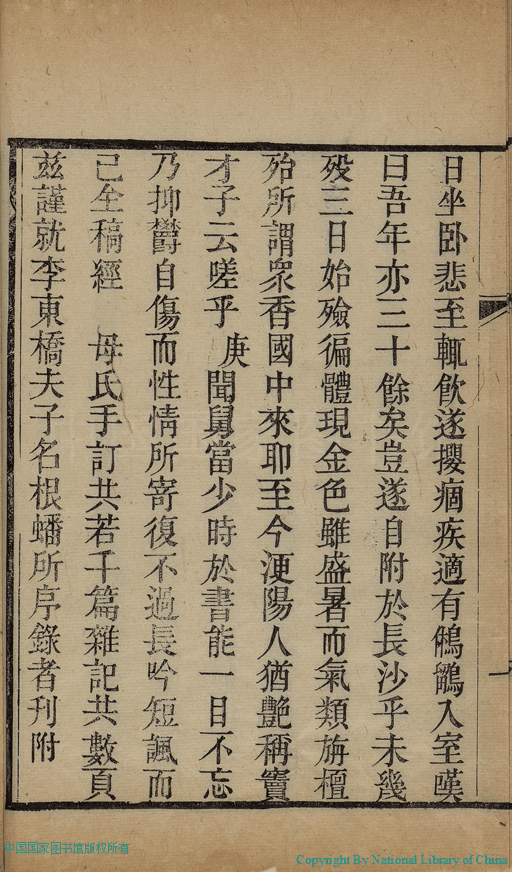 日坐卧悲至輒飲遂攖痼疾適有鵂鶹入室嘆
曰吾年亦三十餘矣豈遂自附於長沙乎未幾
歿三日始殮徧體現金色雖盛暑而氣類旃檀
殆所謂衆香國中來耶至今浭陽人猶艷稱竇
才子云嗟乎 庚聞舅當少時於書能一目不忘
乃抑鬱自傷而性情所寄復不過長吟短諷而
已全稿經 母氏手訂共若干篇雜記共數頁
兹謹就李東橋夫子名根蟠所序錄者刊附
中国国家图书馆版权所有
Copyright By National Library of China